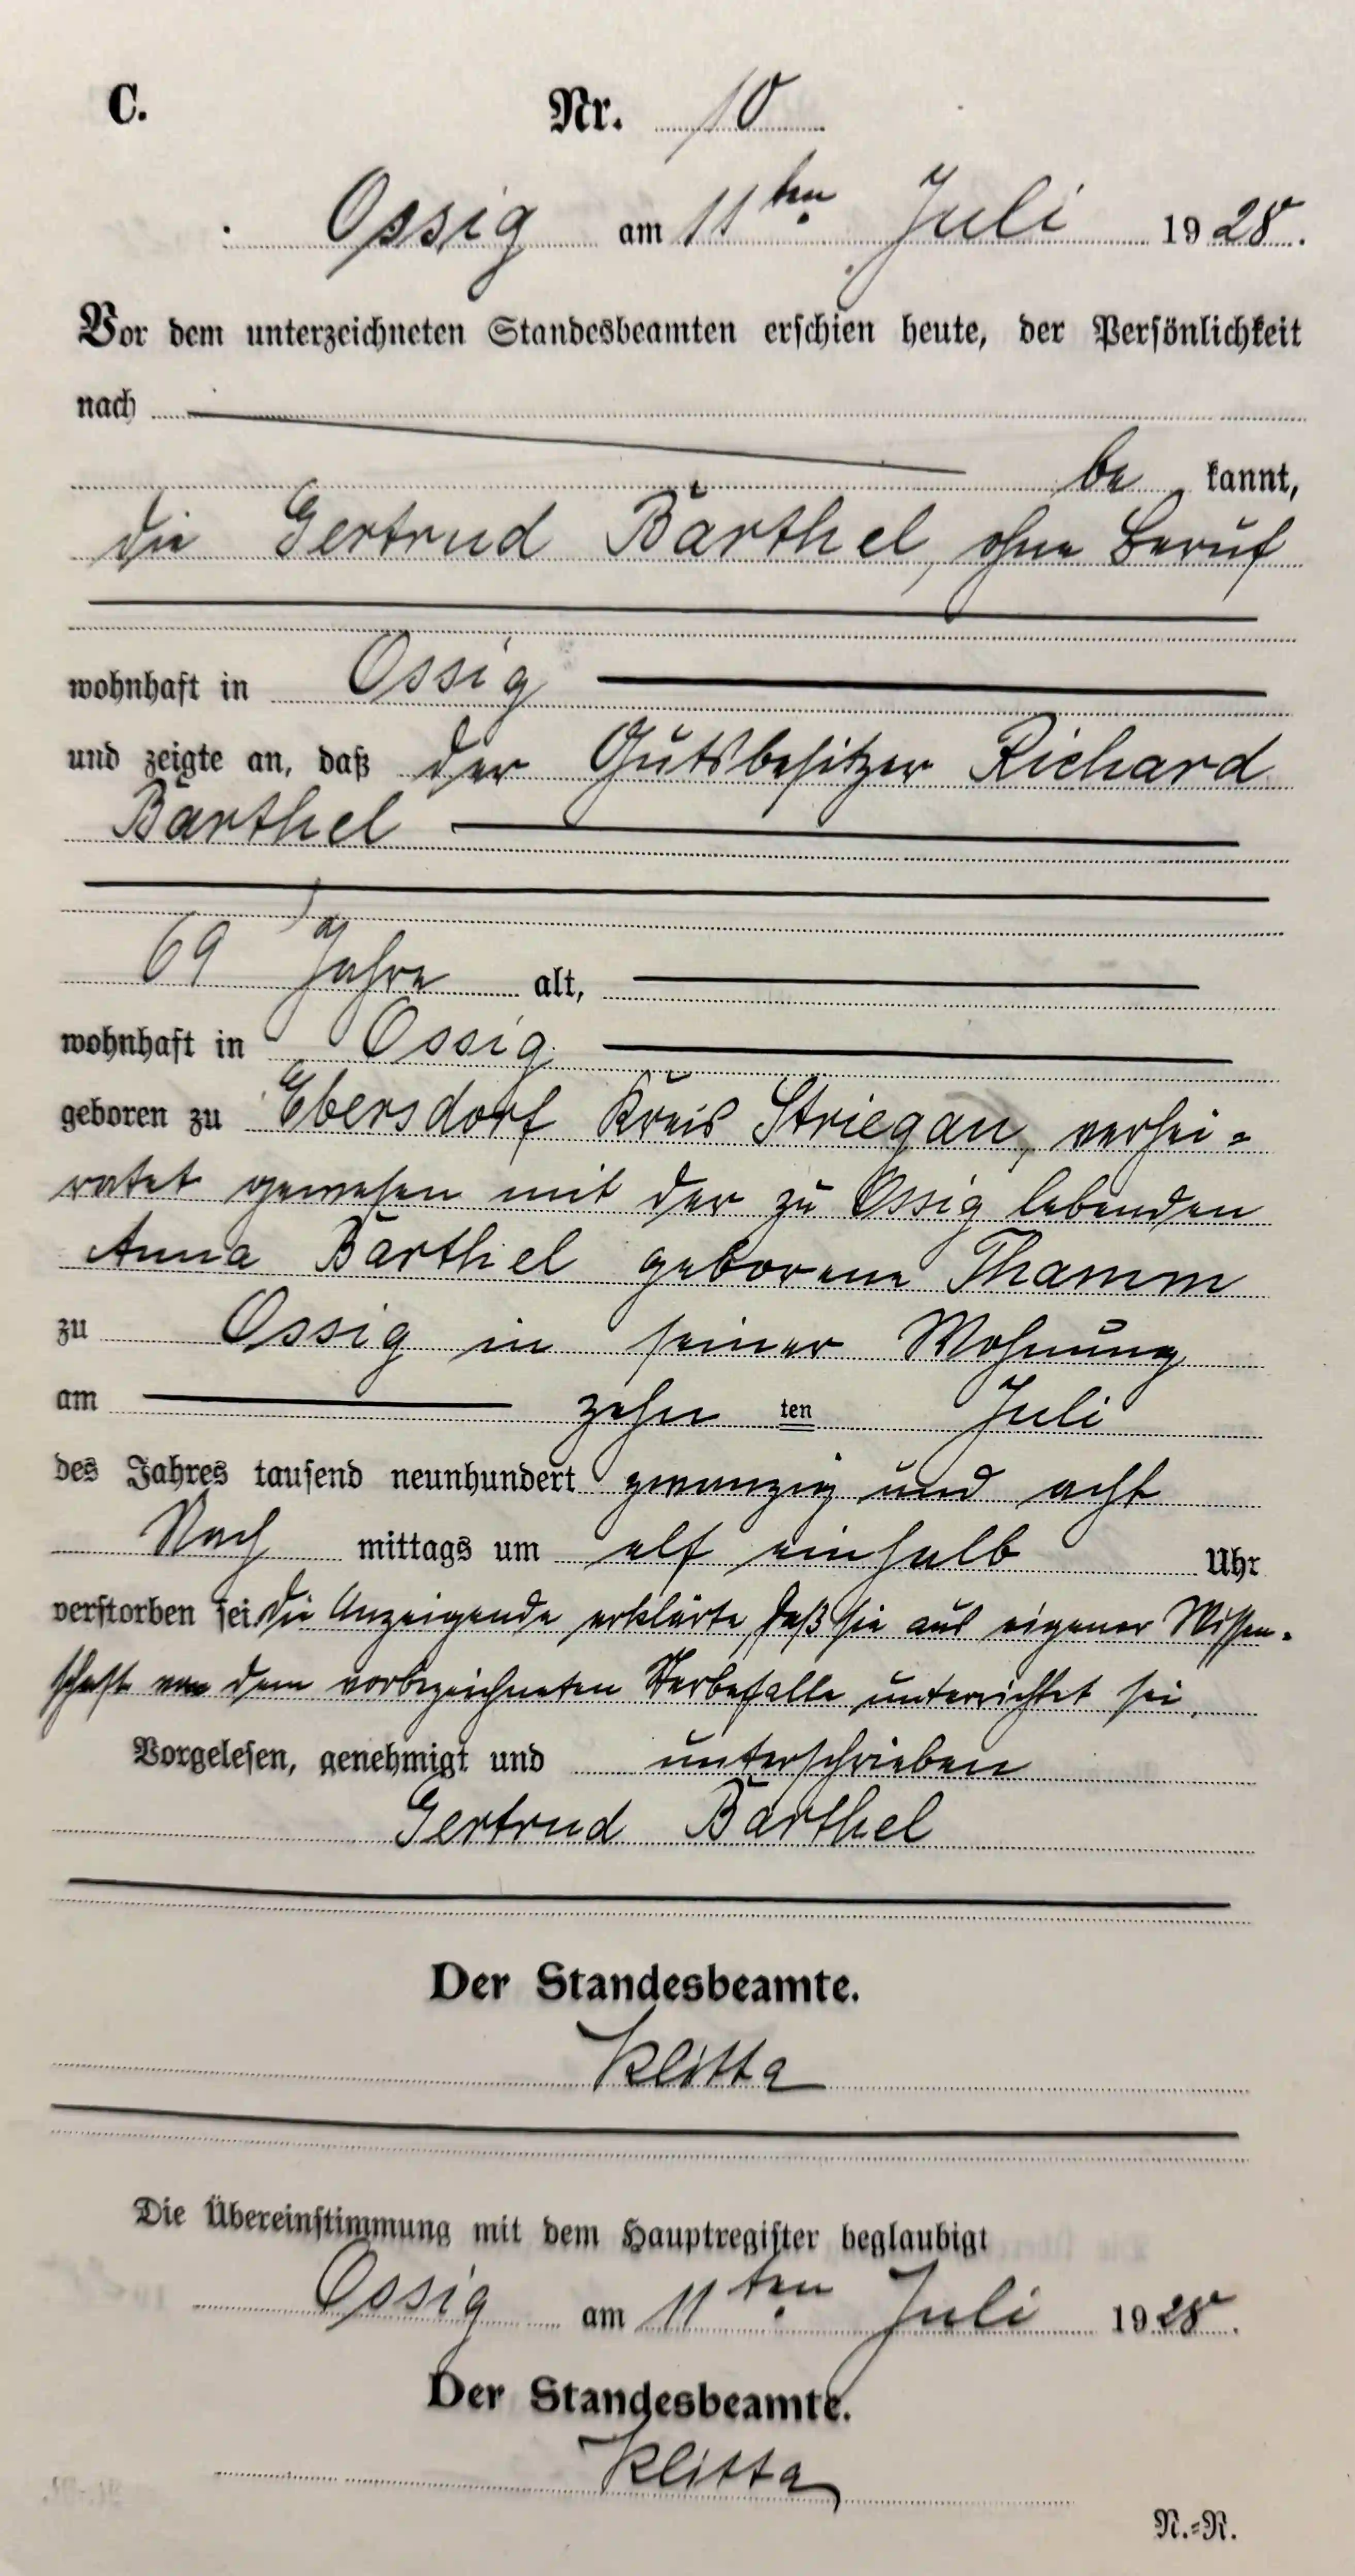 C. Nr. 10
Ossig am 11ten Juli 1928.
Vor dem unterzeichneten Standesbeamten erschien heute, der Persönlichkeit
nach
be kannt,
die Gertrud Barthel, ohne Beruf
wohnhaft in Ossig
und zeigte an, daß der Gutsbesitzer Richard
Barthel
69 Jahre alt,
wohnhaft in Ossig
geboren zu Ebersdorf Kreis Striegau, verhei-
ratet gewesen mit der zu Ossig lebenden
Anna Barthel geborene Thamm
zu Ossig in seiner Wohnung
am zehn ten Juli
des Jahres tausend neunhundert zwanzig und acht
Nach mittags um elf einhalb Uhr
verstorben sei. Die Anzeigende erklärte, daß sie aus eigener Wissen-
schaft von dem vorbezeichneten Sterbefalle unterrichtet sei.
Vorgelesen, genehmigt und unterschrieben
Gertrud Barthel
Der Standesbeamte.
Klitta
Die Übereinstimmung mit dem Hauptregister beglaubigt
Ossig am 11ten Juli 1928.
Der Standesbeamte.
Klitta
N.=R.